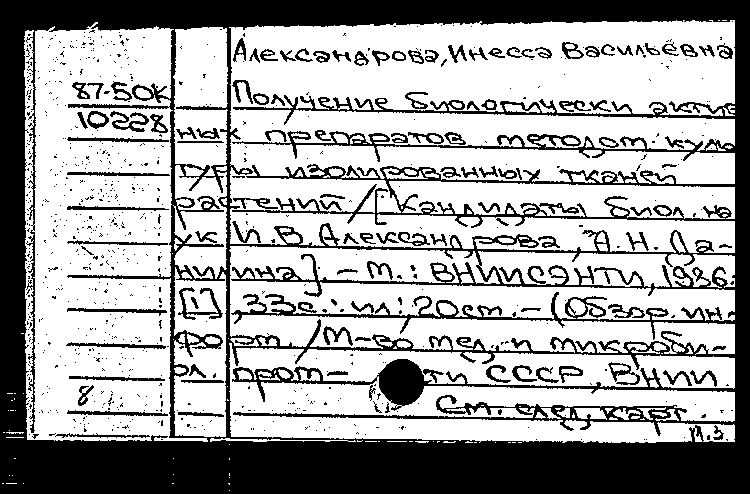 Александрова, Инесса Васильевна
87-50к Получение биологически актив
10228 ных препаратов методом куль
туры изолированных тканей
растений / [Кандидаты биол. на
ук И. В. Александрова, А. Н. Да-
нилина]. - М.: ВНИИСЭНТИ, 1986.
[1], 33 с.: ил.; 20 см. - (Обзор. ин-
форм. / М-во мед. и микроби-
ол. пром- ти СССР, ВНИИ
8 См. след. карт.
М.З